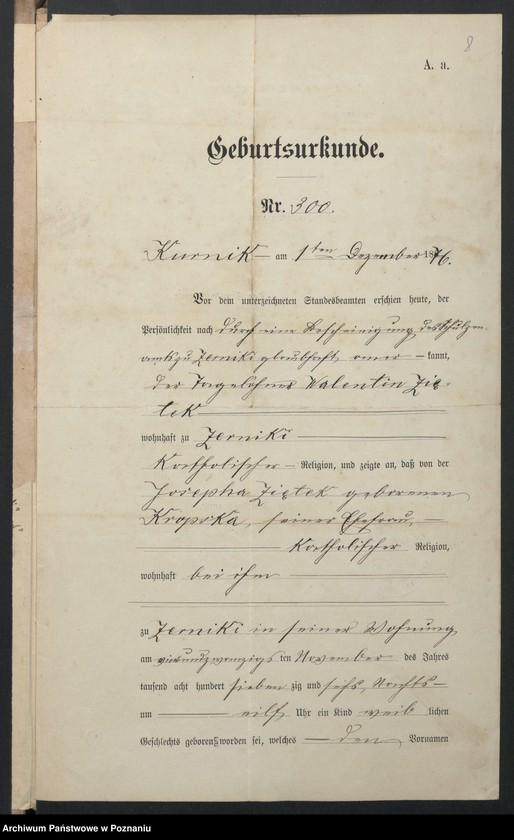 8
A. a.
Geburtsurkunde.
Nr. 300.
Kurnik am 1ten Dezember 1876.
Vor dem unterzeichneten Standesbeamten erschien heute, der
Persönlichkeit nach durch eine Bescheinigung des Schulzen-
amts zu Zerniki glaubhaft aner- kannt,
der Tagelöhner Valentin Zię-
tek
wohnhaft zu Zerniki
Katholischer Religion, und zeigte an, daß von der
Josepha Ziętek geborenen
Kropska, seiner Ehefrau,
Katholischer Religion,
wohnhaft bei ihm
zu Zerniki in seiner Wohnung
am vierundzwanzigs ten November des Jahres
tausend acht hundert sieben zig und sechs, Nachts
um eilf Uhr ein Kind weib lichen
Geschlechts geboren worden sei, welches den Vornamen
Archiwum Państwowe w Poznaniu